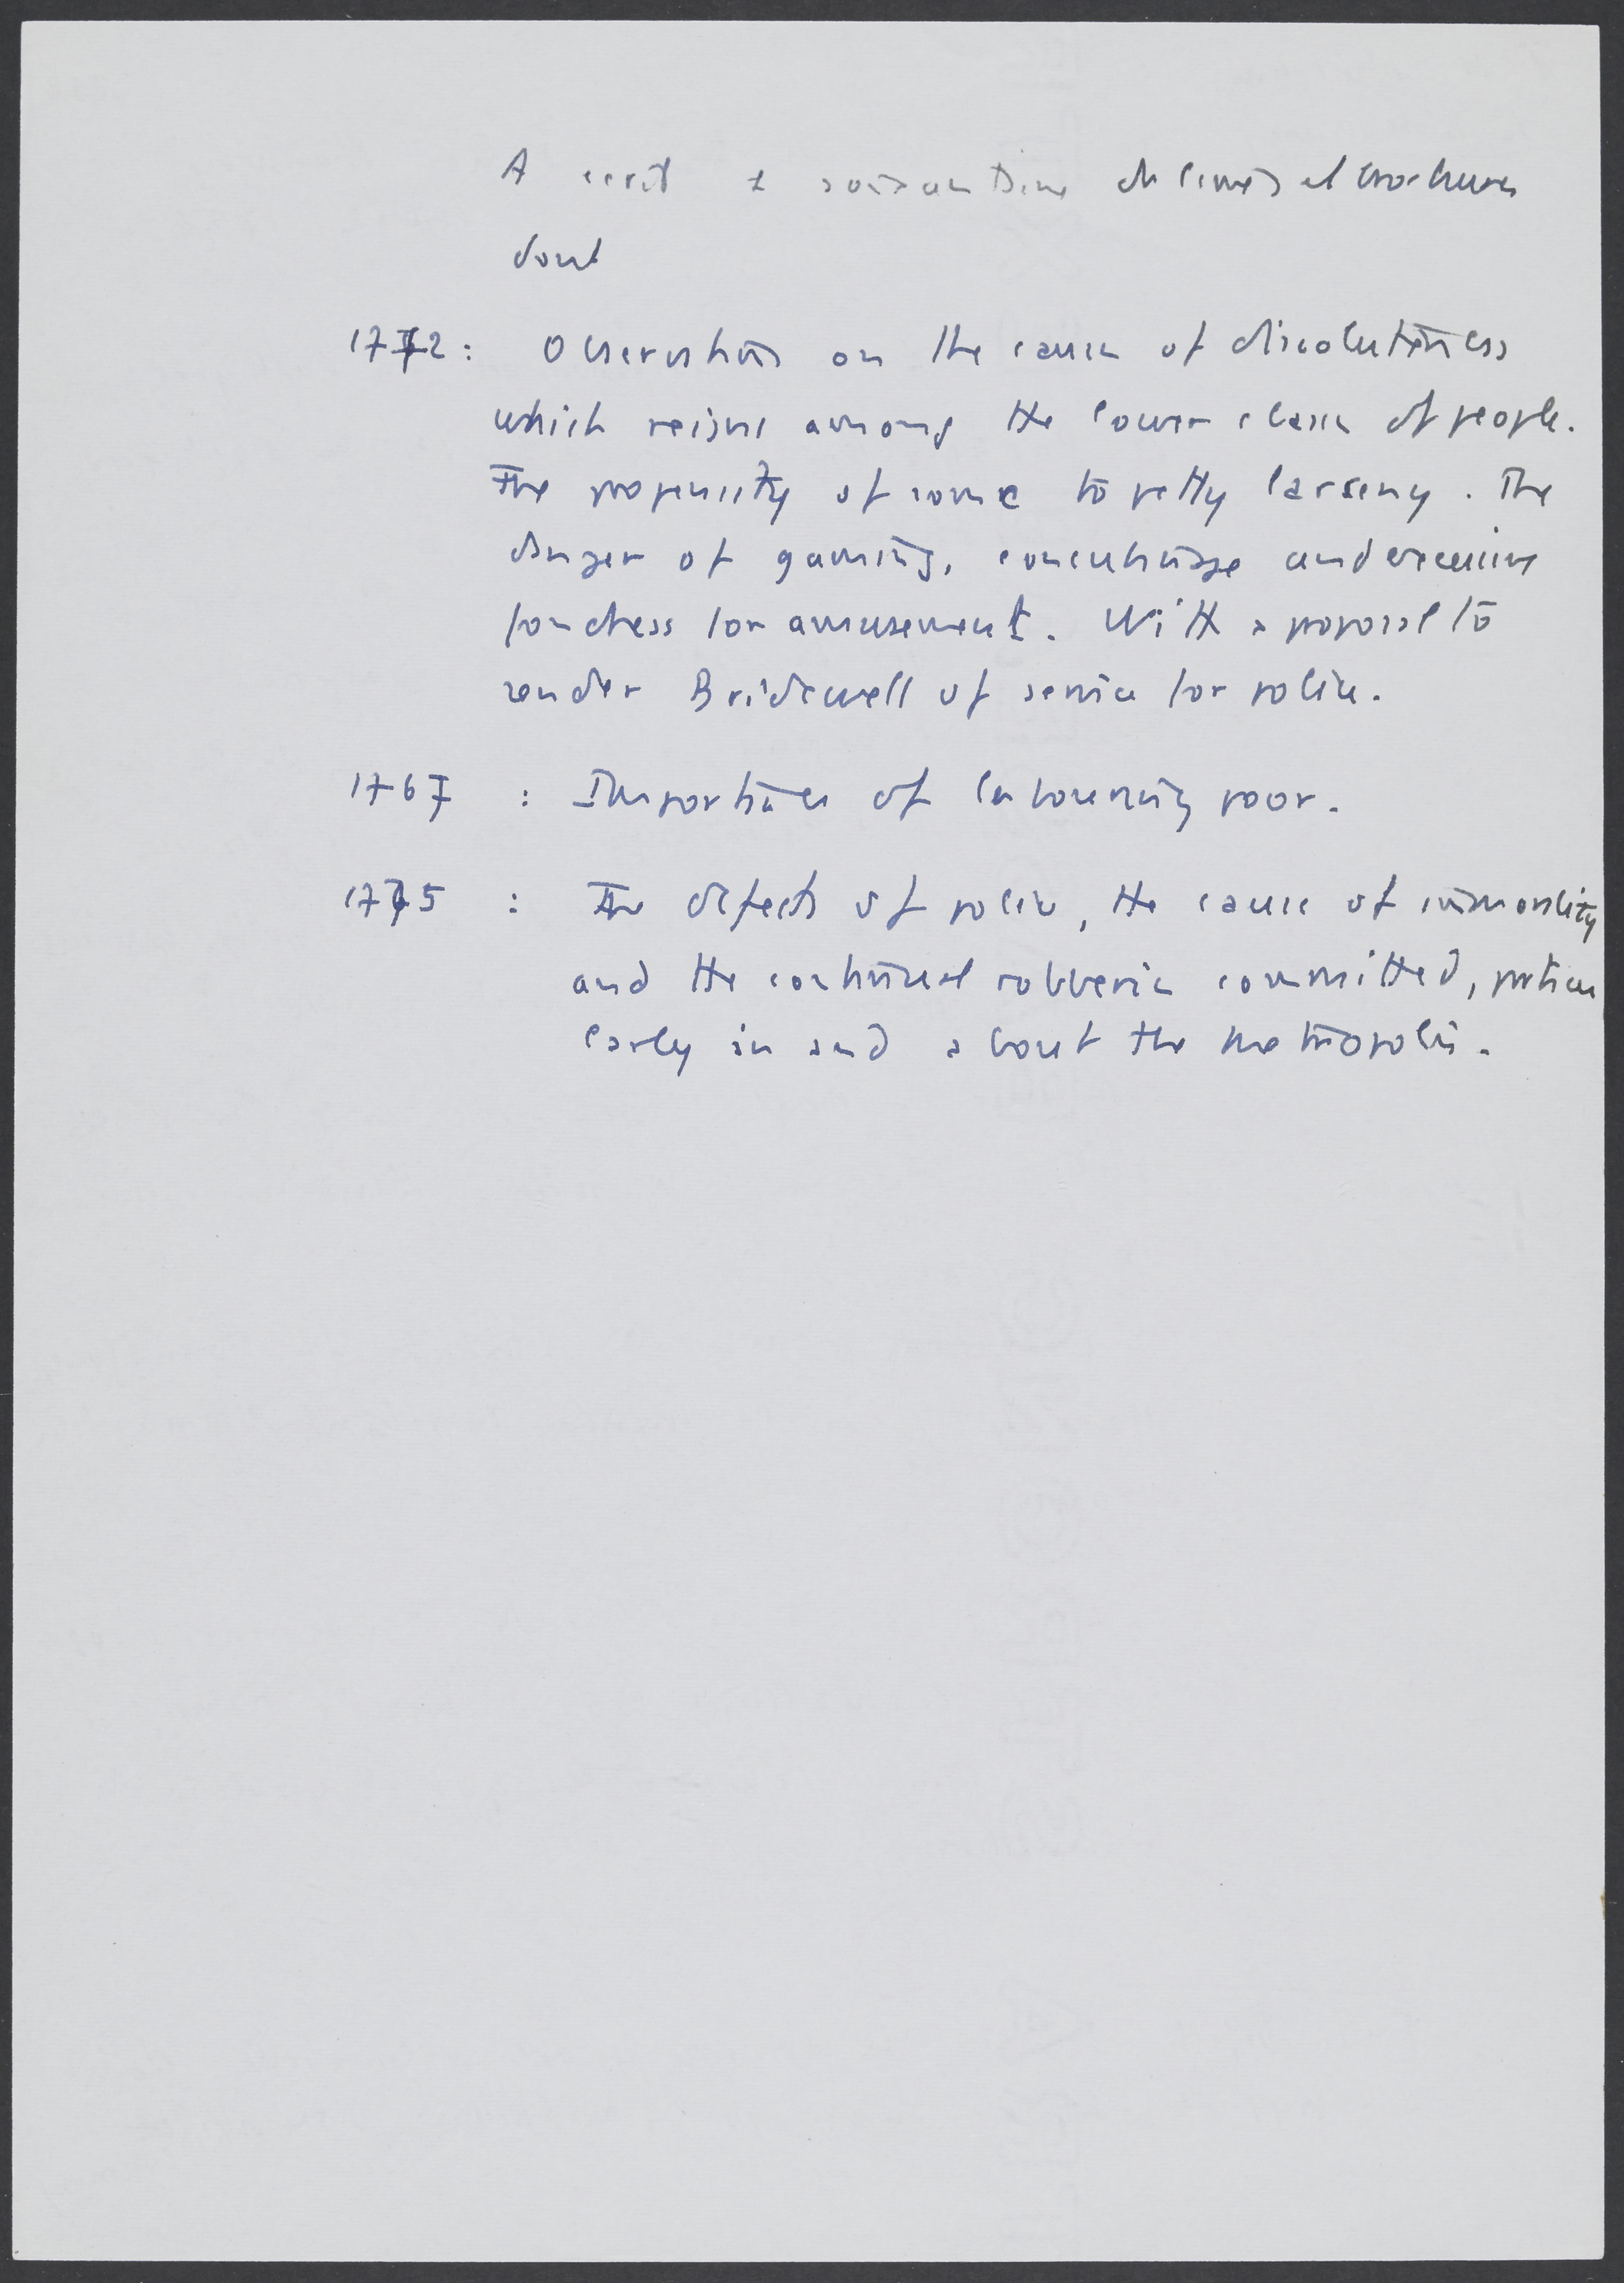 A écrit + soixantaine de livres et brochures
dont
1772 : Observations on the causes of dissoluteness
which reigns among the lower classes of people.
The propensity of some to petty larseny. The
danger of gaming, concubinage and excessive
fondness for amusement. With a proposal to
render Bridewell of service for police.
1767 : Importance of labouring poor.
1775 : The defects of police, the cause of immorality
and the continual robberies committed, particu
larly in and about the metropolis.